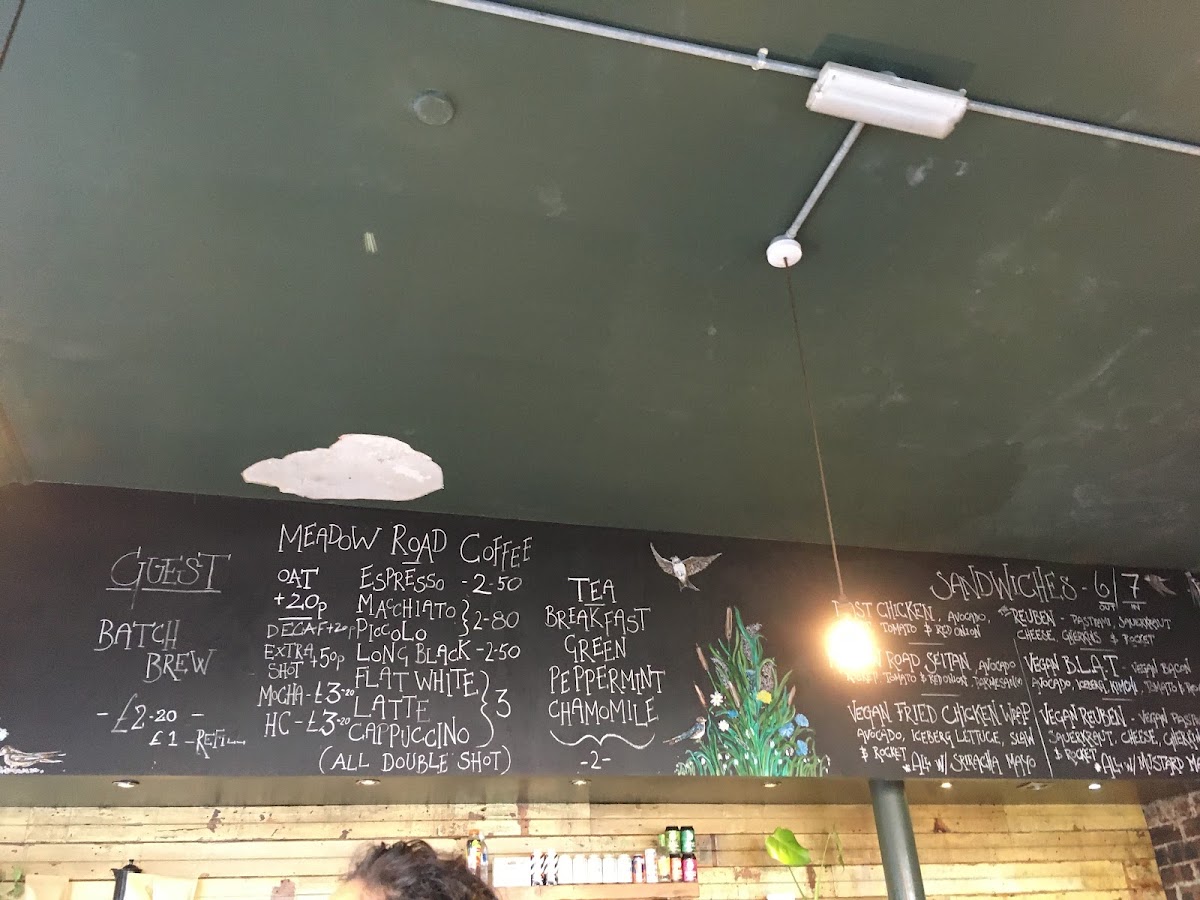 GUEST
BATCH
BREW
- £2-20 -
£1 - REFILL
MEADOW ROAD COFFEE
OAT
+20p
DECAF+20p
EXTRA
SHOT +50p
MOCHA - £3-20
HC - £3-20
ESPRESSO - 2-50
MACCHIATO
PICCOLO
2-80
LONG BLACK - 2-50
FLAT WHITE
LATTE
CAPPUCCINO
3
(ALL DOUBLE SHOT)
TEA
BREAKFAST
GREEN
PEPPERMINT
CHAMOMILE
-2-
SANDWICHES - 6/7
OUT IN
CHICKEN, AVOCADO,
TOMATO & RED ONION
ROAD SEITAN, AVOCADO
TOMATO & RED ONION, PARMESAN
VEGAN FRIED CHICKEN WRAP
AVOCADO, ICEBERG LETTUCE, SLAW
& ROCKET
*ALL W/ SRIRACHA MAYO
REUBEN - PASTRAMI, SAUERKRAUT
CHEESE, GHERKINS & ROCKET
VEGAN B.L.A.T - VEGAN BACON
AVOCADO, ICEBERG, KIMCHI, TOMATO &
VEGAN REUBEN - VEGAN
SAUERKRAUT, CHEESE,
& ROCKET
*ALL W/ MUSTARD